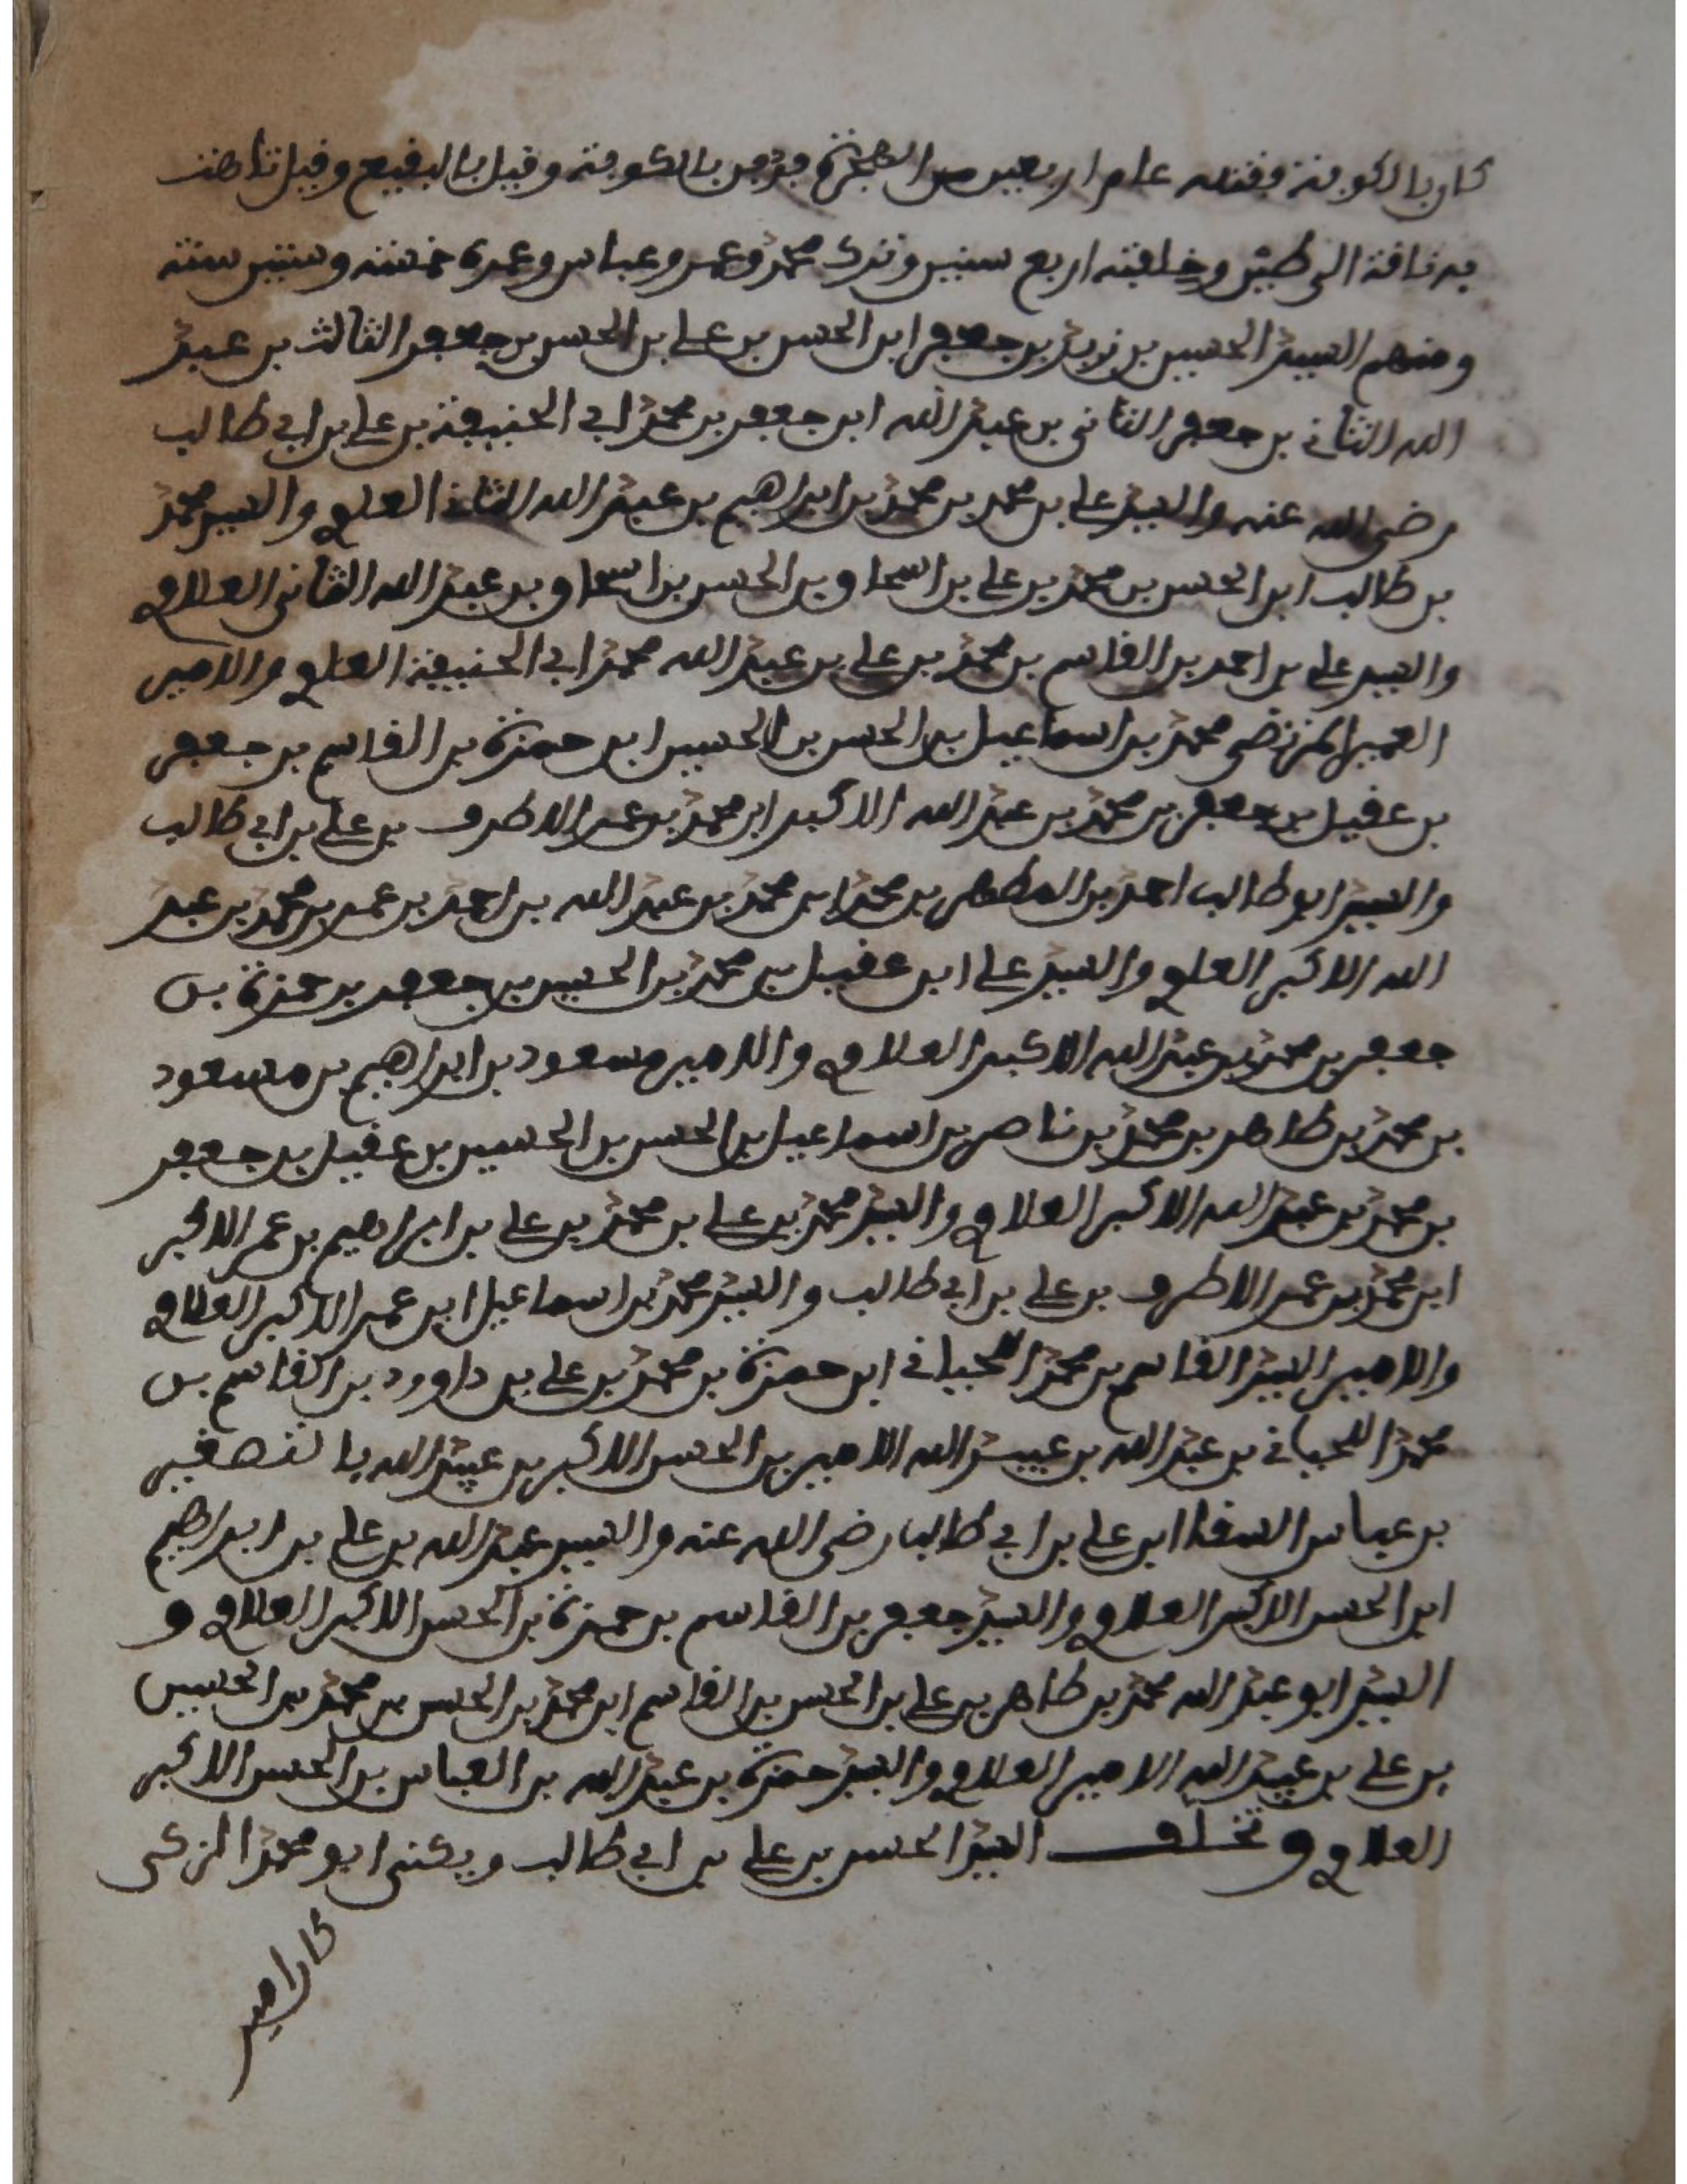 كان بالكوفة وقتله عام اربعين من الهجرة ودفن بالكوفة وقيل بالبقيع وقيل تاهت
به ناقة الى طيئ وخلفته اربع سنين وترك محمد وعمر وعباس وعمره خمسة وستين سنة
ومنهم السيد الحسين بن زيد بن جعفر ابن الحسن بن علي بن الحسن بن جعفر الثالث بن عبد
الله الثاني بن جعفر الثاني بن عبد الله ابن جعفر بن محمد ابي الحنيفة بن علي بن ابي طالب
رضي الله عنه والسيد علي بن محمد بن محمد بن ابراهيم بن عبد الله الثاني العلوي والسيد محمد
بن طالب ابن الحسن بن محمد بن علي بن اسحاق بن الحسن بن اسحاق بن عبد الله الثاني العلاوي
والسيد علي بن احمد بن القاسم بن محمد بن علي بن عبد الله محمد ابي الحنيفة العلوي والامير
العمير المرتضى محمد بن اسماعيل بن الحسن بن الحسين ابن حمزة بن القاسم بن جعفر
بن عقيل بن جعفر بن محمد بن عبد الله الاكبر ابن محمد بن عمر الاطرف بن علي بن ابي طالب
والسيد ابو طالب احمد بن المطهر بن محمد ابن محمد بن عبد الله بن احمد بن عمر بن محمد بن عبد
الله الاكبر العلوي والسيد علي ابن عقيل بن محمد بن الحسين بن جعفر بن حمزة بن
جعفر بن محمد بن عبد الله الاكبر العلاوي والامير مسعود بن ابراهيم بن مسعود
بن محمد بن طاهر بن محمد بن ناصر بن اسماعيل بن الحسن بن الحسين بن عقيل بن جعفر
بن محمد بن عبد الله الاكبر العلاوي والسيد محمد بن علي بن محمد بن علي بن ابراهيم بن عمر الاكبر
ابن محمد بن عمر الاطرف بن علي بن ابي طالب والسيد محمد بن اسماعيل ابن عمر الاكبر العلاوي
والامير السيد القاسم بن محمد اللحياني ابن حمزة بن محمد بن علي بن داوود بن القاسم بن
محمد اللحياني بن عبد الله بن عبيد الله الامير بن الحسن الاكبر بن عبيد الله بالتصغير
بن عباس السقا ابن علي بن ابي طالب رضي الله عنه والسيد عبد الله بن علي بن ابراهيم
ابن الحسن الاكبر العلاوي والسيد جعفر بن القاسم بن حمزة بن الحسن الاكبر العلاوي و
السيد ابو عبد الله محمد بن طاهر بن علي بن الحسن بن القاسم ابن محمد بن الحسن بن محمد بن الحسين
بن علي بن عبيد الله الامير العلاوي والسيد حمزة بن عبد الله بن العباس بن الحسن الاكبر
العلاوي وتخلف السيد الحسن بن علي بن ابي طالب ويكنى ابو محمد الزكي
كان امير